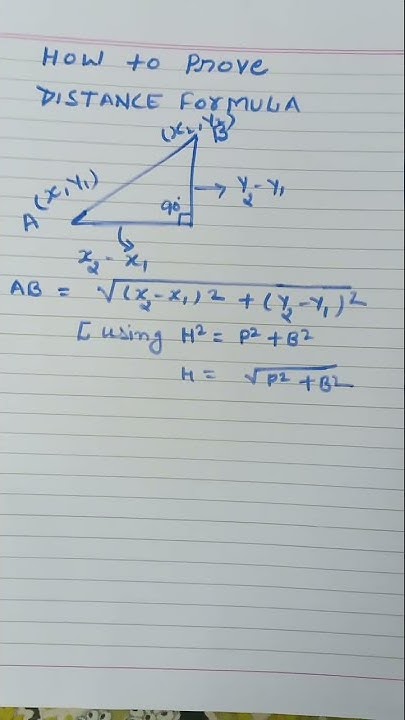 How to Prove
DISTANCE FORMULA
(x₂, y₂)
B
(x₁ y₁)
A
90°
→ y₂ - y₁
x₂ - x₁
AB = √(x₂-x₁)² + (y₂-y₁)²
[ using H² = P² + B²
H = √P² + B²